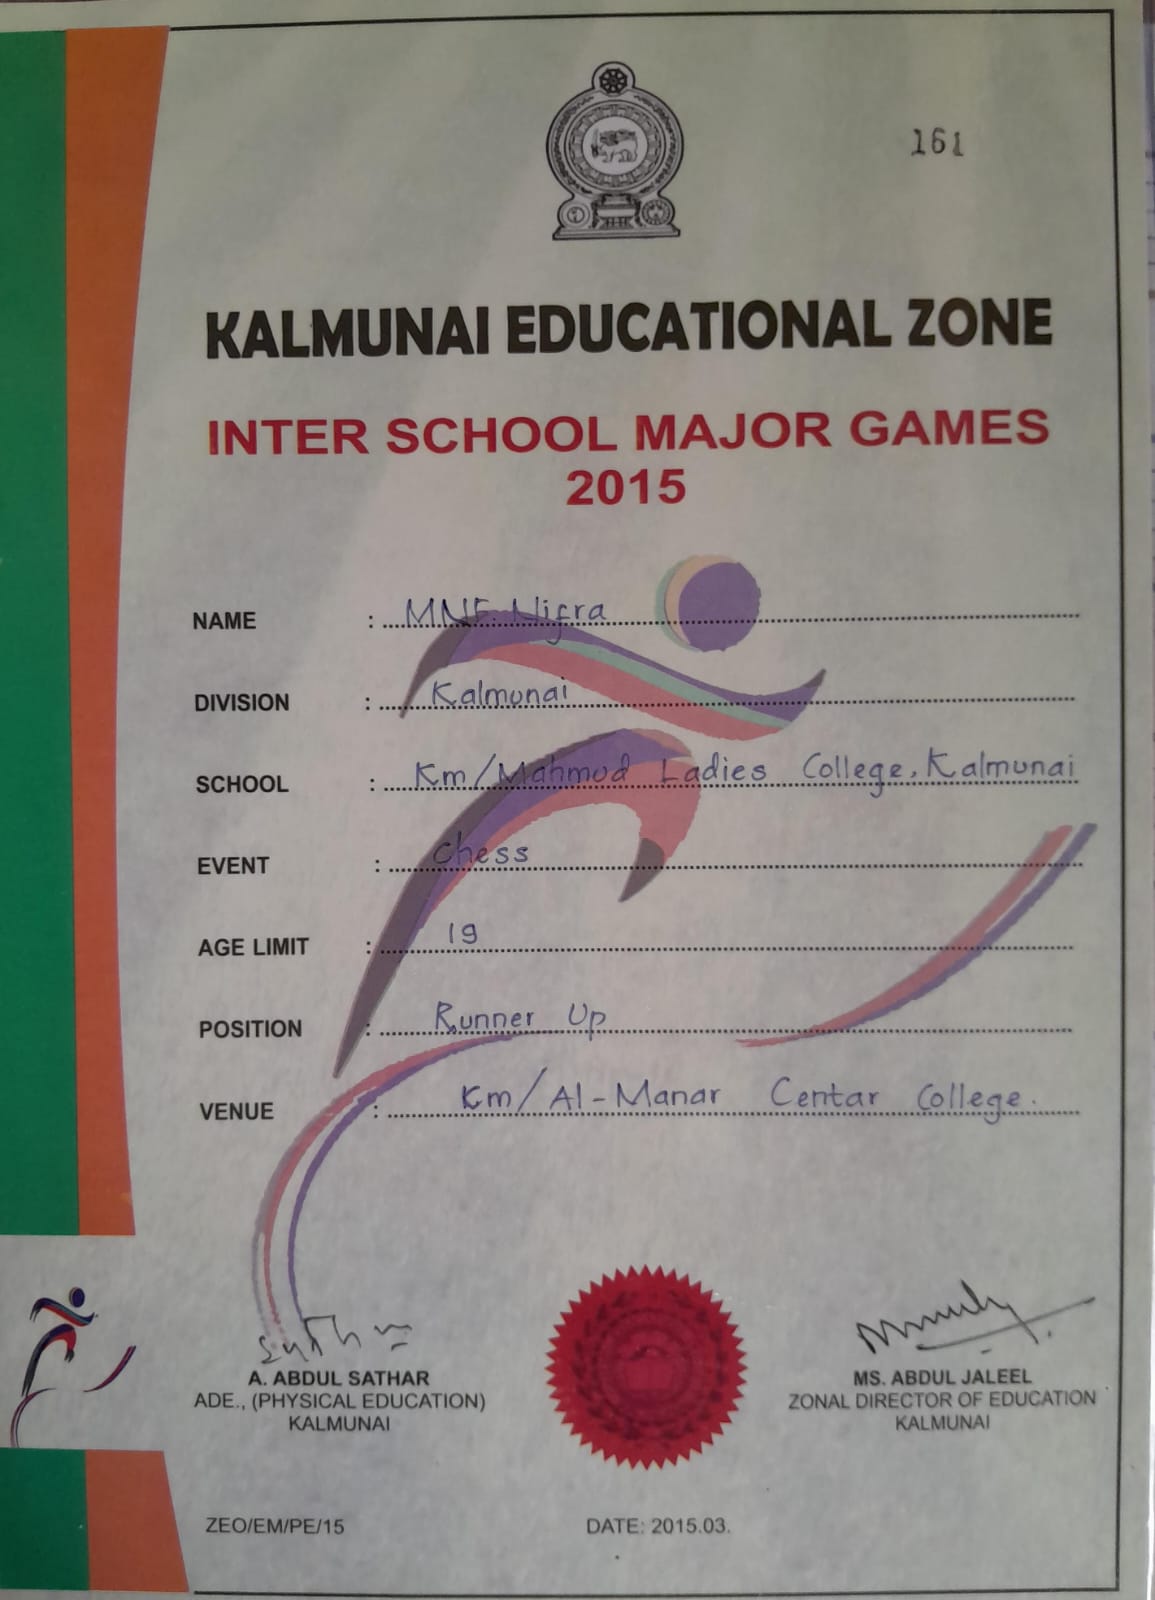 161
KALMUNAI EDUCATIONAL ZONE
INTER SCHOOL MAJOR GAMES
2015
NAME : MNF. Nifra
DIVISION : Kalmunai
SCHOOL : Km/Mahmud Ladies College, Kalmunai
EVENT : chess
AGE LIMIT : 19
POSITION : Runner Up
VENUE : Km/Al-Manar Centar College.
A. ABDUL SATHAR
ADE., (PHYSICAL EDUCATION)
KALMUNAI
MS. ABDUL JALEEL
ZONAL DIRECTOR OF EDUCATION
KALMUNAI
ZEO/EM/PE/15
DATE: 2015.03.